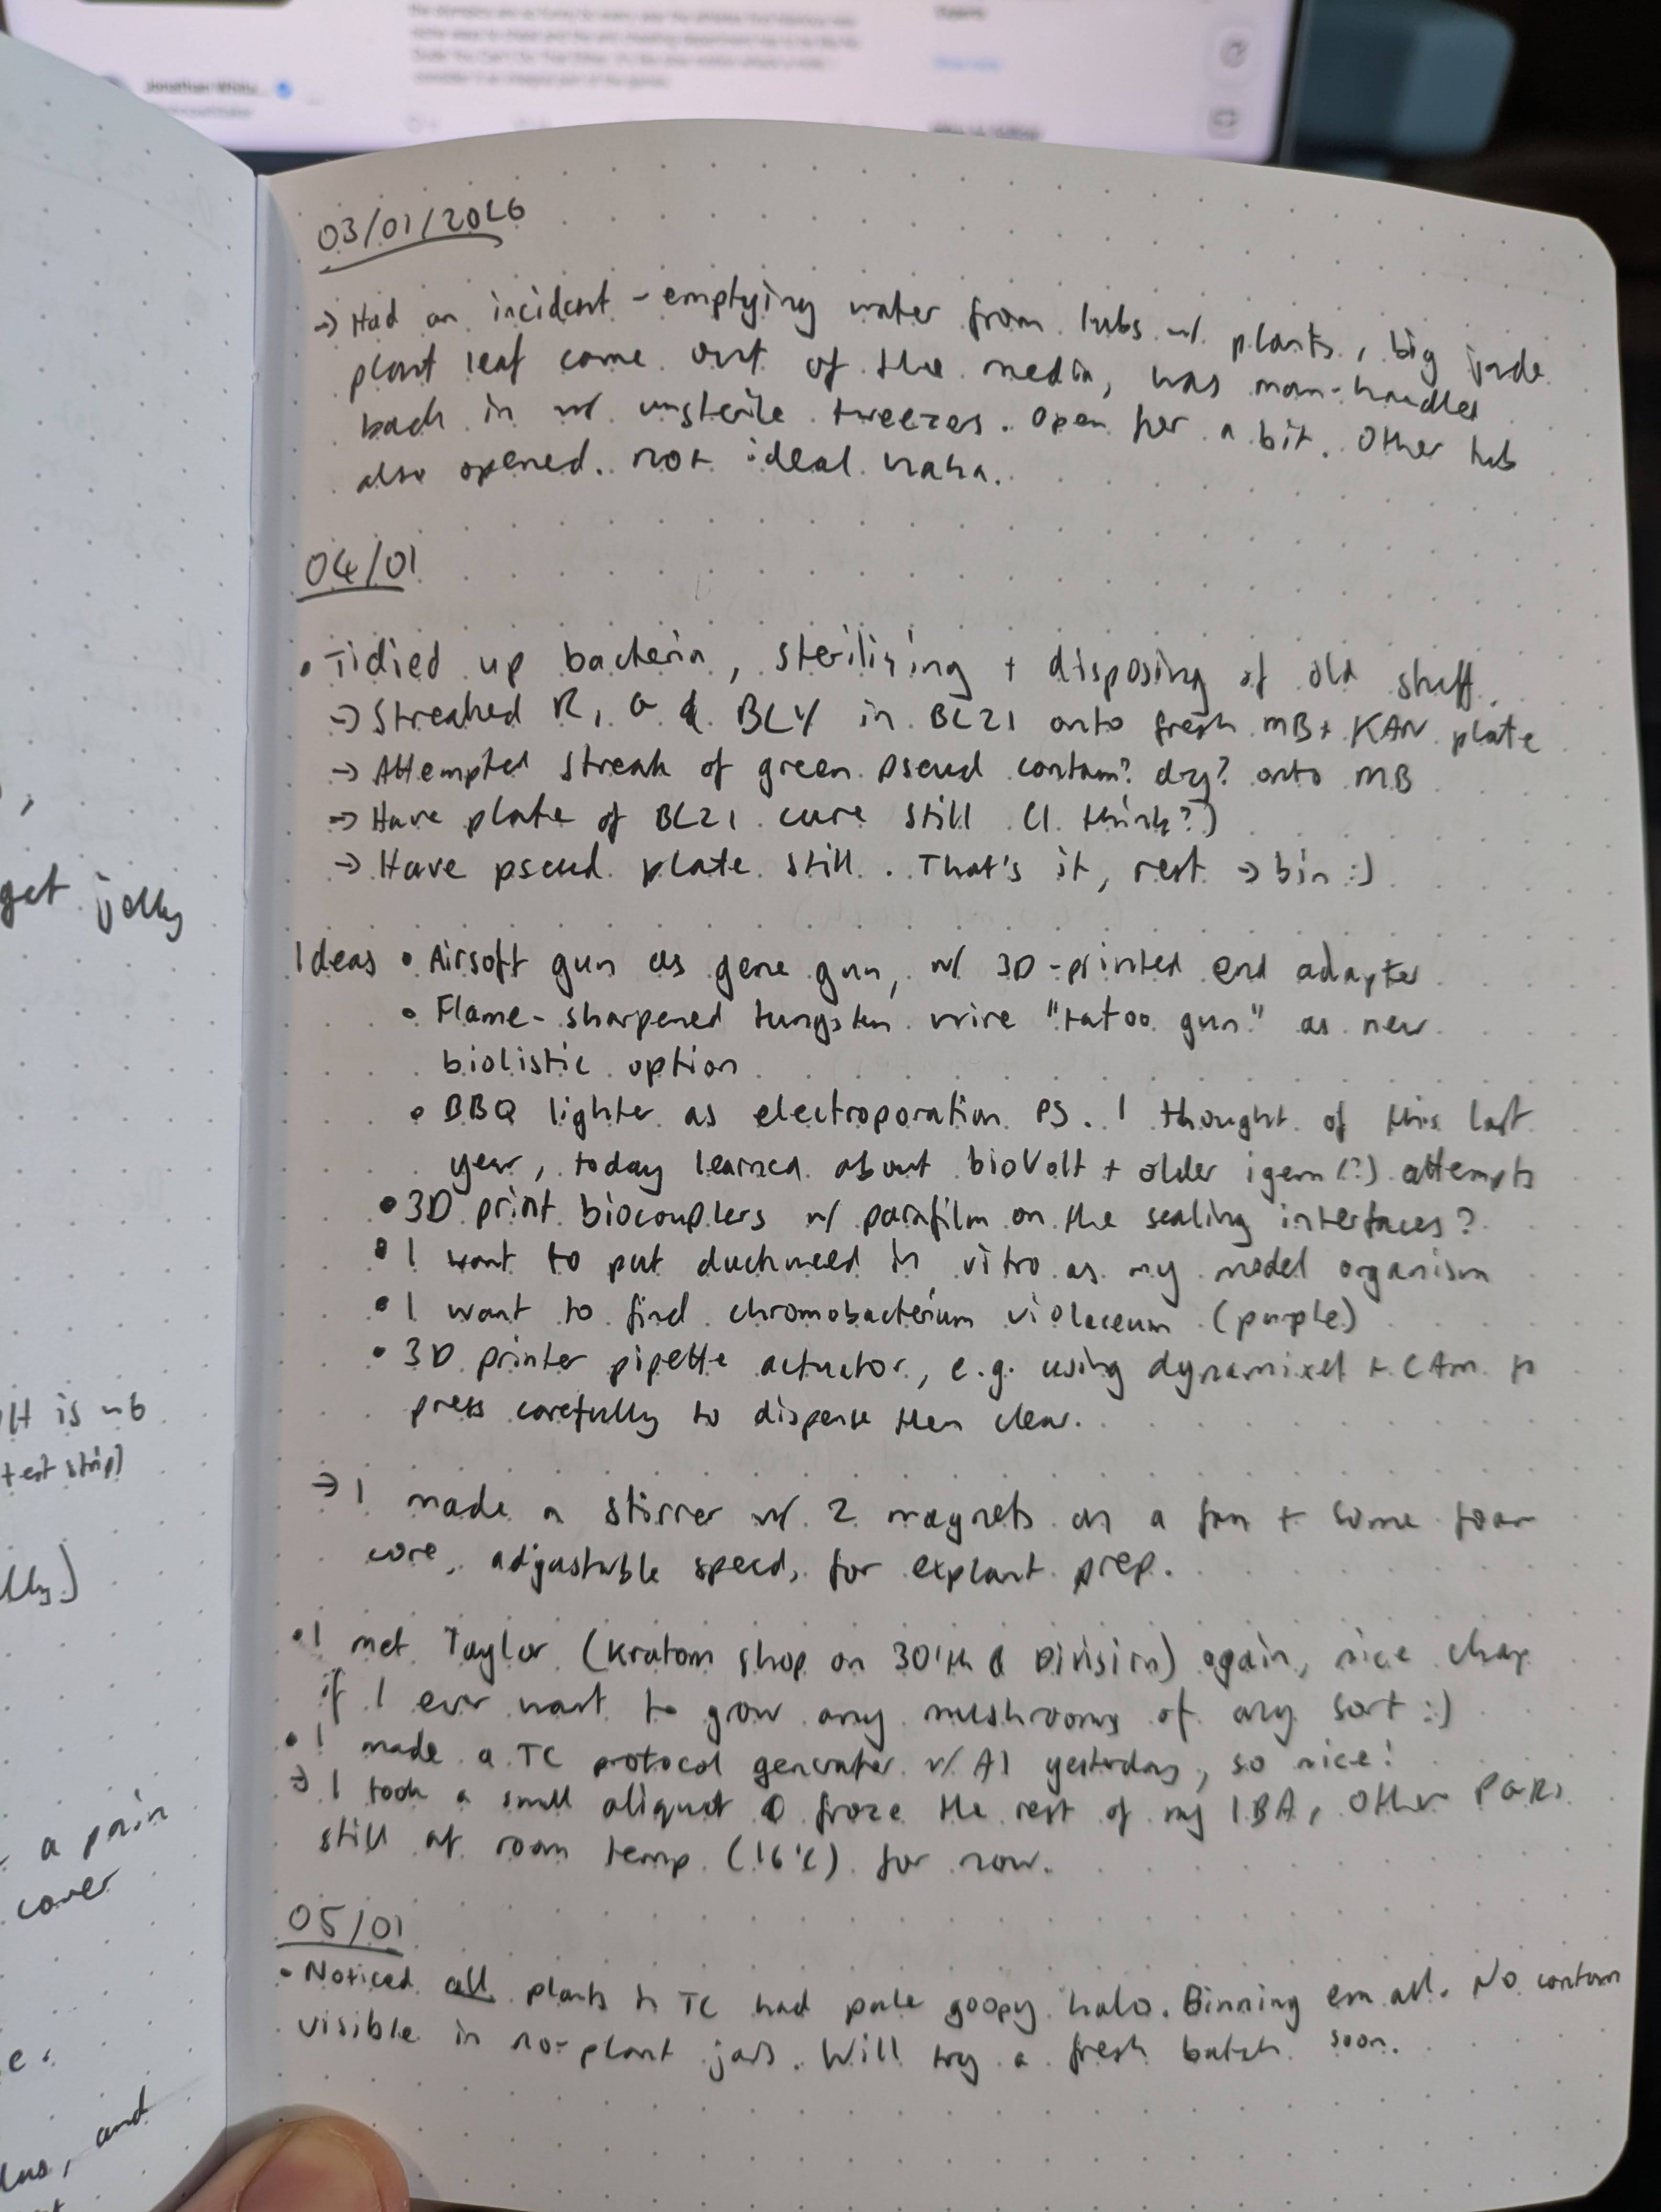 Jonathan Whita...
get jolly
pH is ~6
test strip)
a pain
cover
and
03/01/2026
→ Had an incident - emptying water from tubs w/ plants, big jade
plant leaf came out of the media, was man-handled
back in w/ unsterile tweezers. Open for a bit. Other tub
also opened. Not ideal haha.
04/01
• Tidied up bacteria, sterilizing + disposing of old stuff.
→ Streaked R, G & BLY in BL21 onto fresh MB+KAN plate
→ Attempted streak of green pseud contam? dry? onto MB
→ Have plate of BL21 cure still (I think?)
→ Have pseud plate still. That's it, rest → bin :)
Ideas • Airsoft gun as gene gun, w/ 3D-printed end adapter
• Flame-sharpened tungsten wire "tatoo gun" as new
biolistic option
• BBQ lighter as electroporation PS. I thought of this last
year, today learned about bioVolt + older igem(?) attempts
• 3D print biocouplers w/ parafilm on the sealing interfaces?
• I want to put duckweed in vitro as my model organism
• I want to find chromobacterium violaceum (purple)
• 3D printer pipette actuator, e.g. using dynamixel + CAM to
press carefully to dispense then clear.
→ I made a stirrer w/ 2 magnets on a fan + some foam
core, adjustable speed, for explant prep.
• I met Taylor (Kratom shop on 30'th & Division) again, nice chap
if I ever want to grow any mushrooms of any sort :)
• I made a TC protocol generator w/ AI yesterday, so nice!
→ I took a small aliquot & froze the rest of my IBA, other PGRs
still at room temp (16°C) for now.
05/01
• Noticed all plants in TC had pale goopy halo. Binning em all. No contam
visible in no-plant jars. Will try a fresh batch soon.